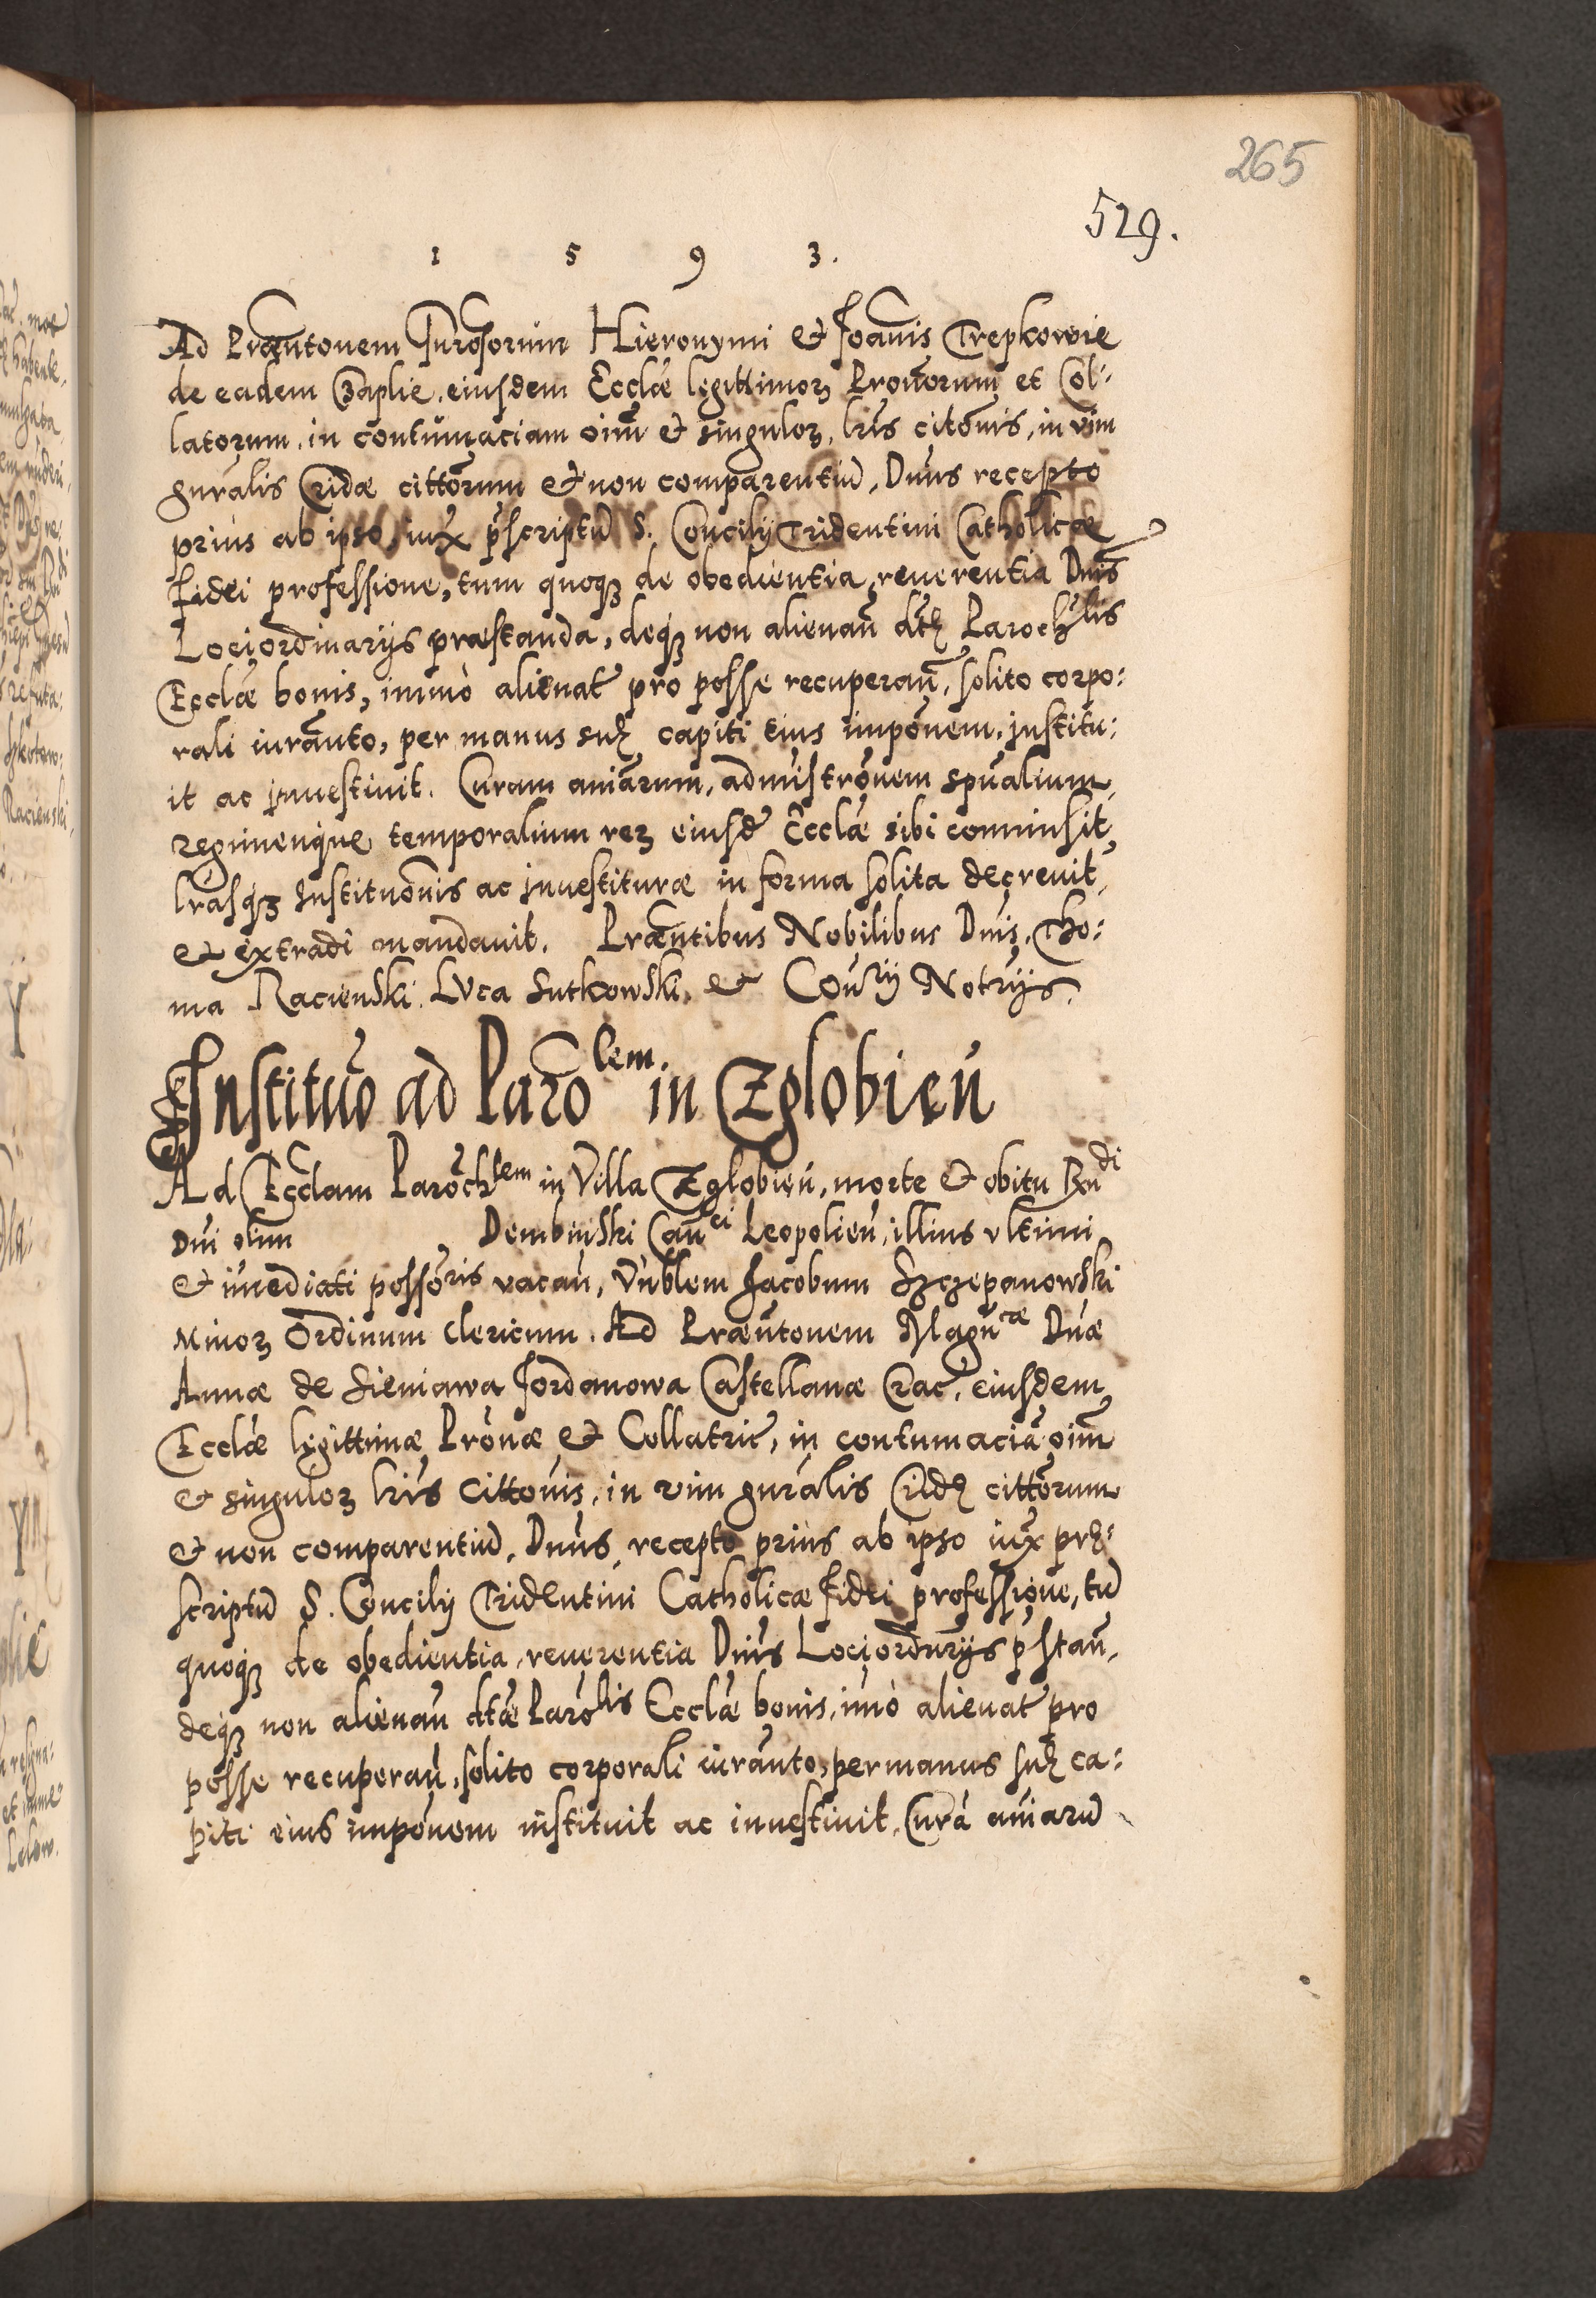 265
529.
1 5 9 3.
Ad Præntonem Gnrosorum Hieronymi & Joannis Trepkowie
de eadem Czaplie. eiusdem Ecclæ legittimorꝫ Pronorum et Col-
latorum. in contumaciam oiũ & singulorꝫ, lris citonis, in vim
gnralis Cridæ cittorum & non comparentiũ, Dnus recepto
prius ab ipso, iux p̃scriptũ S. Concilij Tridentini Catholicæ
fidei professione, tum quoqꝫ de obedientia, reuerentia Dnis
Lociordinarijs præstanda, deqꝫ non alienañ dtę Parochlis
Ecclæ bonis, immò alienat pro posse recuperañ, solito corpo:
rali iuranto, per manus suę capiti eius imponem. institu:
it ac jnuestiuit. Curam aniarum, admistronem spualium,
regimenque temporalium rerꝫ eiusd Ecclæ sibi commisit,
lrasqꝫ Institutonis ac jnuestituræ in forma solita decreuit,
& extradi mandauit. Præntibus Nobilibus Dnis, Tho:
ma Racienski. Luca Sutkowski, & Conrij Notrijs.
Institutio ad Parolem. in Zglobień
Ad Eccłam Parochlem in Villa Zglobień, morte & obitu Rndi
Dni olim Dembinski Canci Leopolień, illius vltimi
& imediati possoris vacañ, Vnblem Jacobum Szczepanowski
Minorꝫ Ordinum Clericum. Ad Præntonem Magncæ Dnæ
Annæ de Sieniawa Jordanowa Castellanæ Crac. eiusdem
Ecclæ legittimæ Pronæ & Collatric, in contumaciã oiũ
& singulorꝫ lris Cittonis, in vim gnralis Cridę cittorum
& non comparentiũ, Dnus recepto prius ab ipso iux prę:
scriptũ S. Concilij Tridentini Catholicæ fidei professione, tũ
quoqꝫ de obedientia, reuerentia Dnis Lociordnrijs p̃stañ,
deqꝫ non alienañ dtæ Parolis Ecclæ bonis, imò alienat pro
posse recuperañ, solito corporali iuranto, per manus suę ca:
piti eius imponem instituit ac inuestiuit, Curã aniarũ